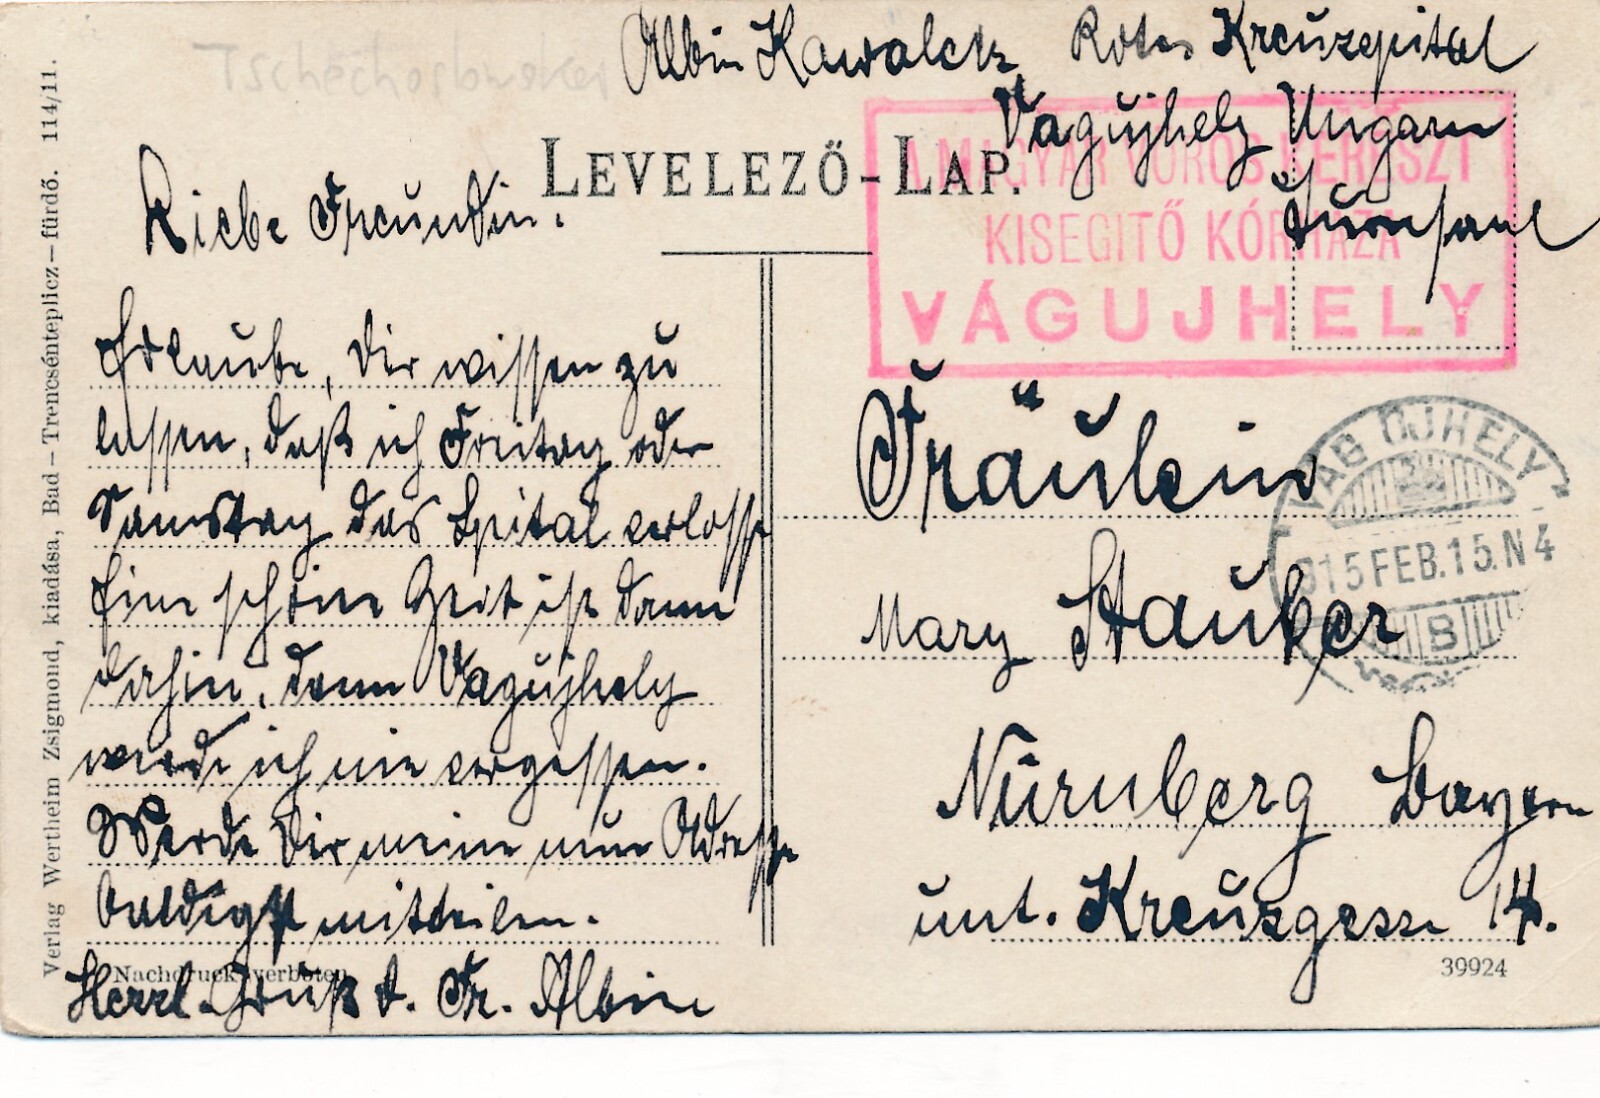 Tschechoslowakei
Albin Kawalek Rotes Kreuzspital
Vagujhely Ungarn
Turnsaal
LEVELEZŐ-LAP.
A MAGYAR VÖRÖS KERESZT
KISEGITŐ KÓRHÁZA
VÁGUJHELY
Liebe Freundin.
Erlaube, Dir wissen zu
lassen, daß ich Freitag oder
Samstag das Spital verlasse
Eine schöne Zeit ist dann
dahin, denn Vagujhely
werde ich nie vergessen.
Werde Dir meine neue Adresse
baldigst mitteilen.
Herzl. Gruß d. Fr. Albin
Fräulein
Mary Stauber
Nürnberg Bayern
unt. Kreuzgasse 14.
VÁG UJHELY
915 FEB. 15. N 4
B
Verlag Wertheim Zsigmond, kiadása, Bad-Trencsénteplicz-fürdő. 114/11.
Nachdruck verboten
39924